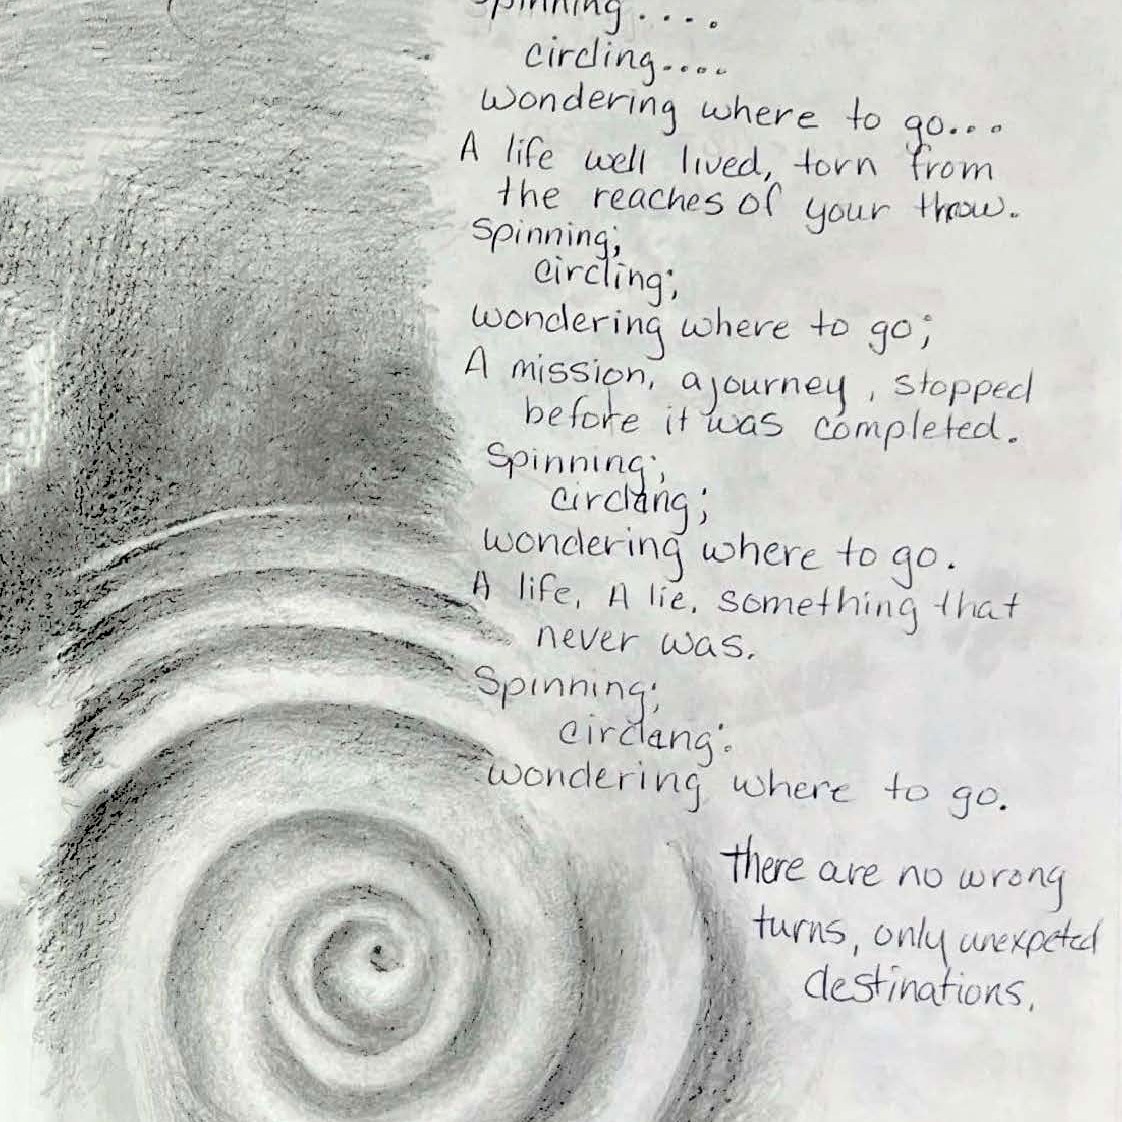 Spinning....
circling....
wondering where to go...
A life well lived, torn from
the reaches of your throw.
Spinning;
circling;
wondering where to go;
A mission, a journey, stopped
before it was completed.
Spinning;
circlang;
wondering where to go.
A life, A lie, something that
never was.
Spinning;
circlang;
wondering where to go.
there are no wrong
turns, only unexpeted
destinations.